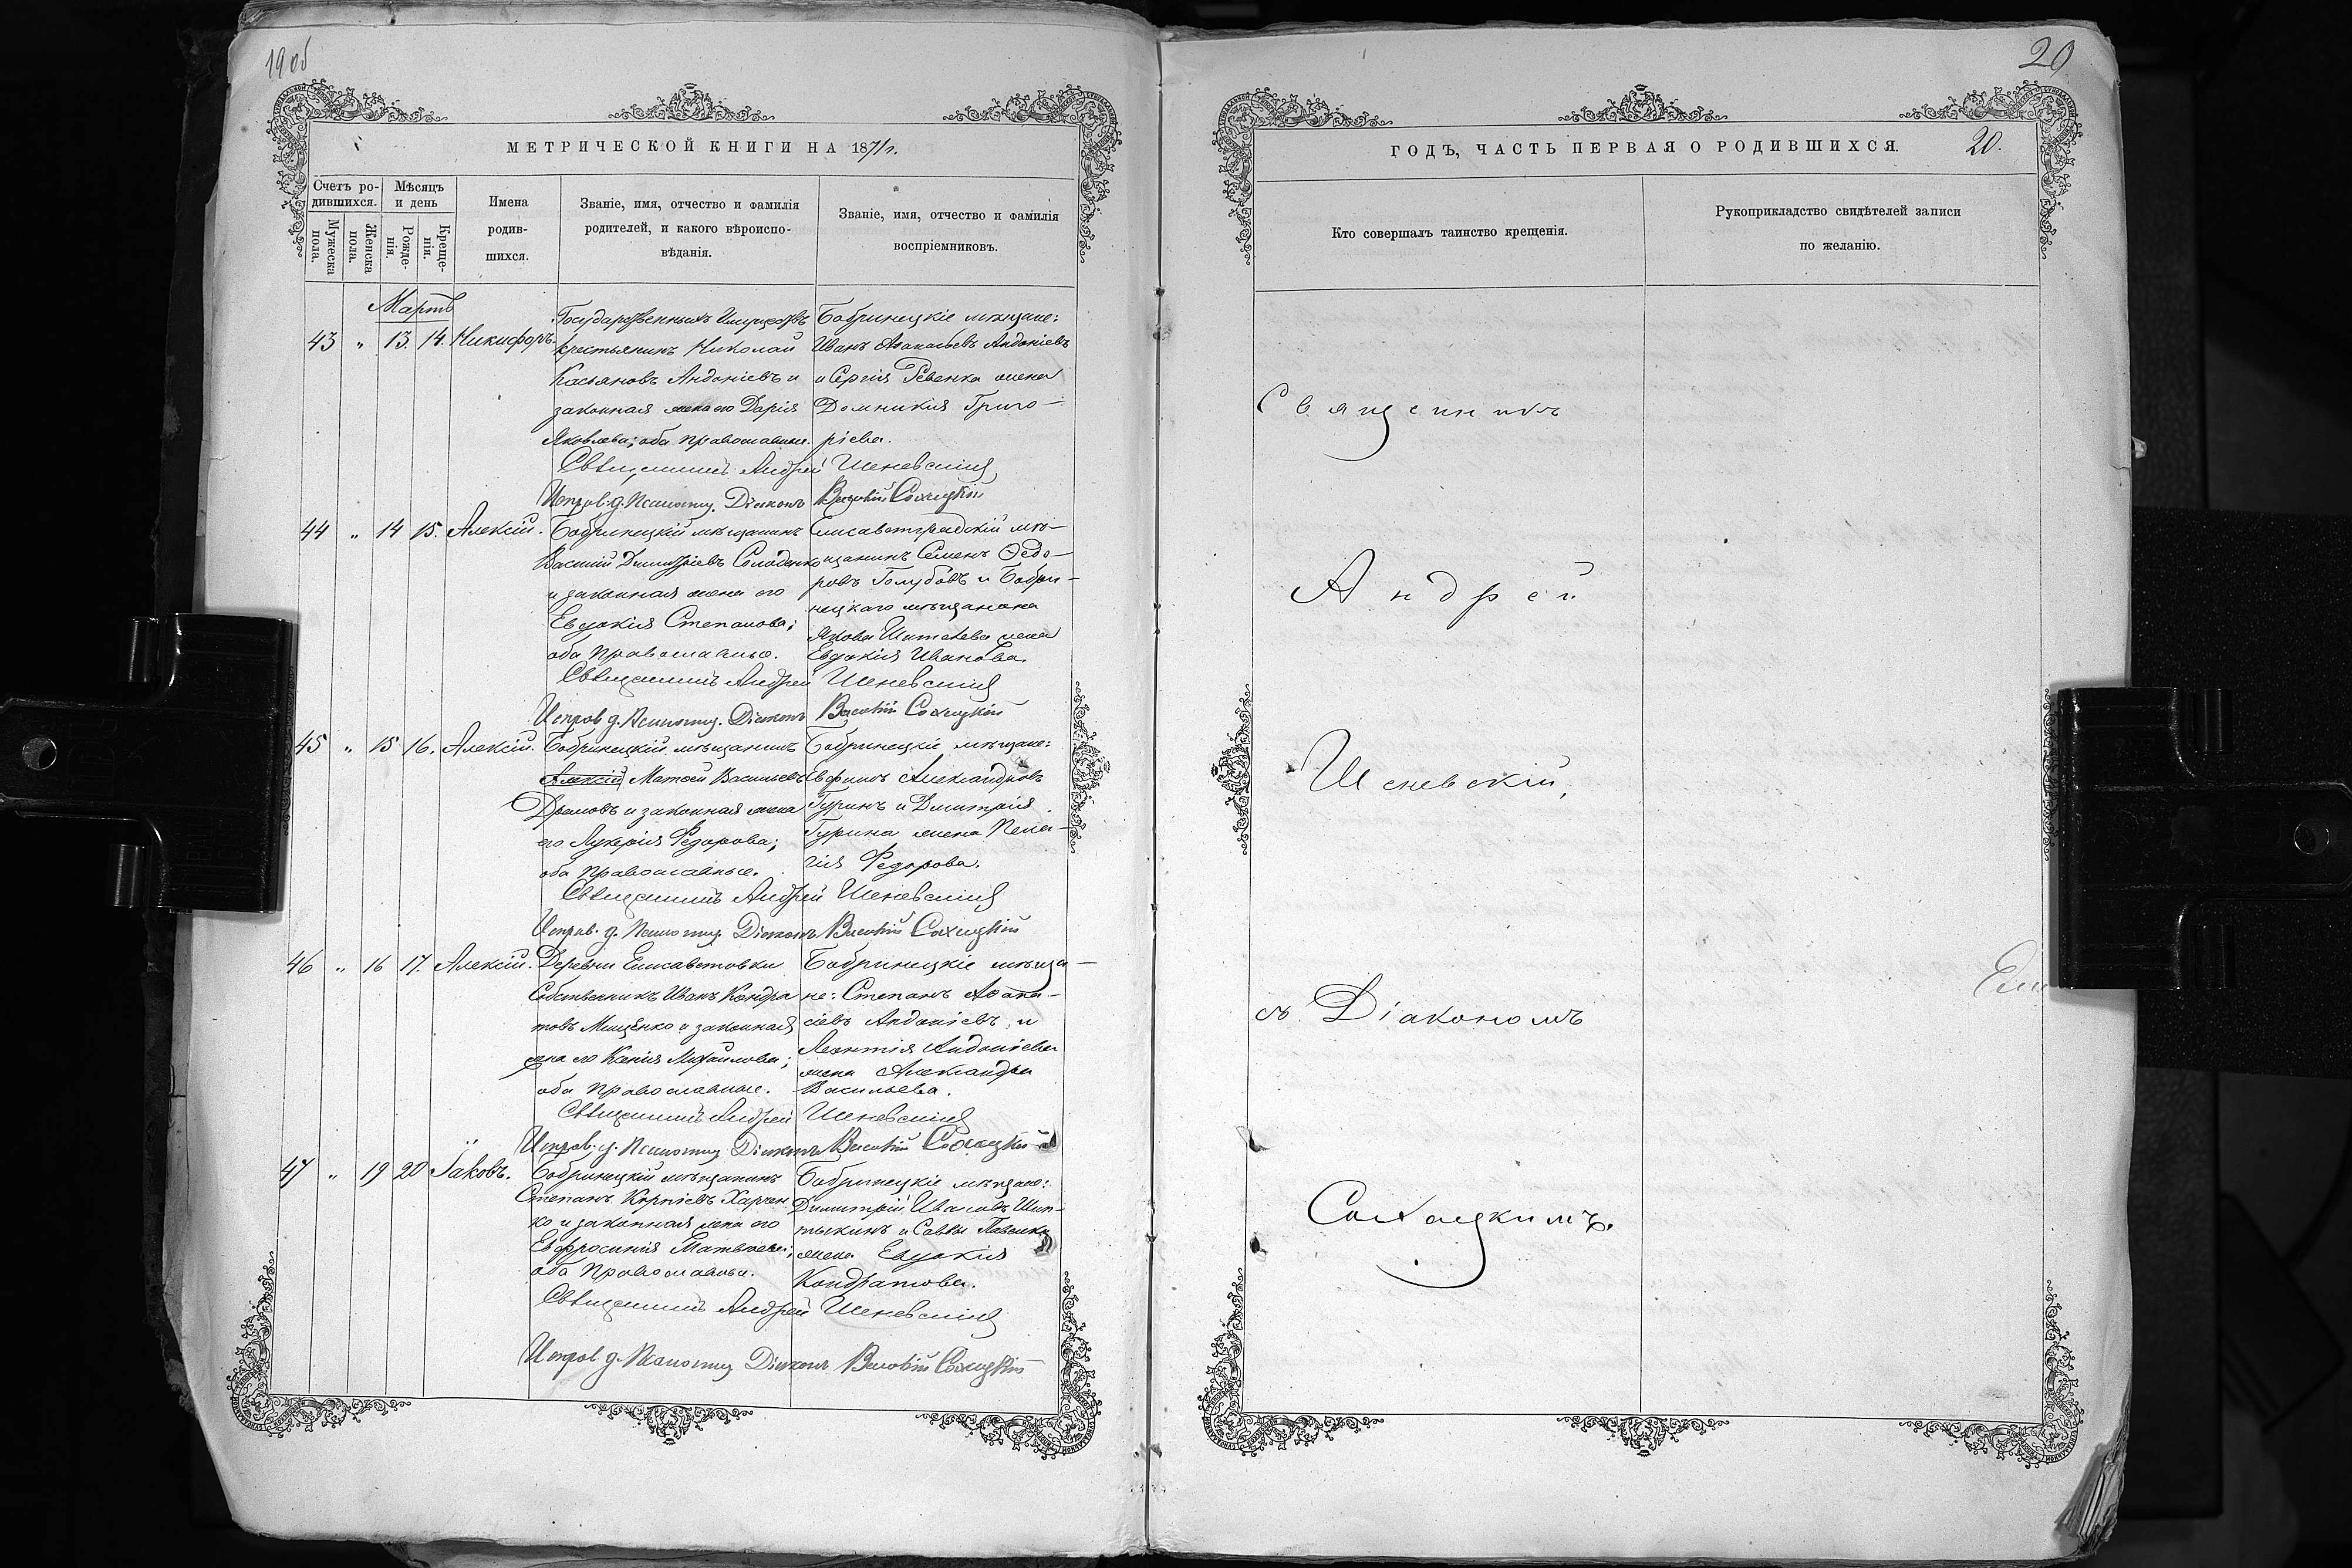 19 об
МЕТРИЧЕСКОЙ КНИГИ НА 1871 г.
Счетъ ро-
дившихся.
Мужеска
пола.
Женска
пола.
Мѣсяцъ
и день
Рожде-
нія.
Креще-
нія.
Имена
родив-
шихся.
Званіе, имя, отчество и фамилія
родителей, и какого вѣроиспо-
вѣданія.
Званіе, имя, отчество и фамилія
воспріемниковъ.
Мартъ
43 " 13. 14. Никифоръ.
Государственныхъ Имуществъ
крестьянинъ Николай
Касьяновъ Андоніевъ и
законная жена его Дарія
Яковлева; оба православные.
Бобринецкіе мѣщане:
Иванъ Андоніевъ
и Сергія Ревенка жена
Домникія Григо-
ріева.
Священникъ Андрей Шеневскій
Исправ. д. Псаломщ. Діаконъ Василій Сохацкій
44 " 14 15. Алексій.
Бобринецкій мѣщанинъ
Василій Димитріевъ Солоденко
и законная жена его
Евдокія Степанова;
оба православные.
Елисаветградскій мѣ-
щанинъ Семенъ Ѳедо-
ровъ Голубовъ и Бобри-
нецкаго мѣщанина
Якова жена
Евдокія Иванова.
Священникъ Андрей Шеневскій
Исправ. д. Псаломщ. Діаконъ Василій Сохацкій
45 " 15 16. Алексій.
Бобринецкій мѣщанинъ
Алексій Матѳей Васильевъ
и законная жена
его Лукерія Федорова;
оба православные.
Бобринецкіе мѣщане:
Евфимъ Александровъ
Гуринъ и Димитрія
Гурина жена Пела-
гія Федорова.
Священникъ Андрей Шеневскій
Исправ. д. Псаломщ. Діаконъ Василій Сохацкій
46 " 16 17. Алексій.
Деревни Елисаветовки
Собственникъ Иванъ Кондра
товъ Мищенко и законная
жена его Ксенія Михайлова;
оба православные.
Бобринецкіе мѣща-
не: Степанъ Аѳана-
сіевъ Андоніевъ, и
Леонтія Андоніева
жена Александра
Васильева.
Священникъ Андрей Шеневскій
Исправ. д. Псаломщ. Діаконъ Василій Сохацкій
47 " 19 20 Іаковъ.
Бобринецкій мѣщанинъ
Степанъ Корніевъ Харчен
ко и законная жена его
Евфросинія Матвѣева;
оба православные.
Бобринецкіе мѣщане:
Димитрій Ивановъ Шип-
тыкинъ и Саввы Павленка
жена Евдокія
Кондратова.
Священникъ Андрей Шеневскій
Исправ. д. Псаломщ. Діаконъ Василій Сохацкій
20
ГОДЪ, ЧАСТЬ ПЕРВАЯ О РОДИВШИХСЯ.
20.
Кто совершалъ таинство крещенія.
Рукоприкладство свидѣтелей записи
по желанію.
Священникъ
Андрей
Шеневскій,
съ Діакономъ
Сохацкимъ.